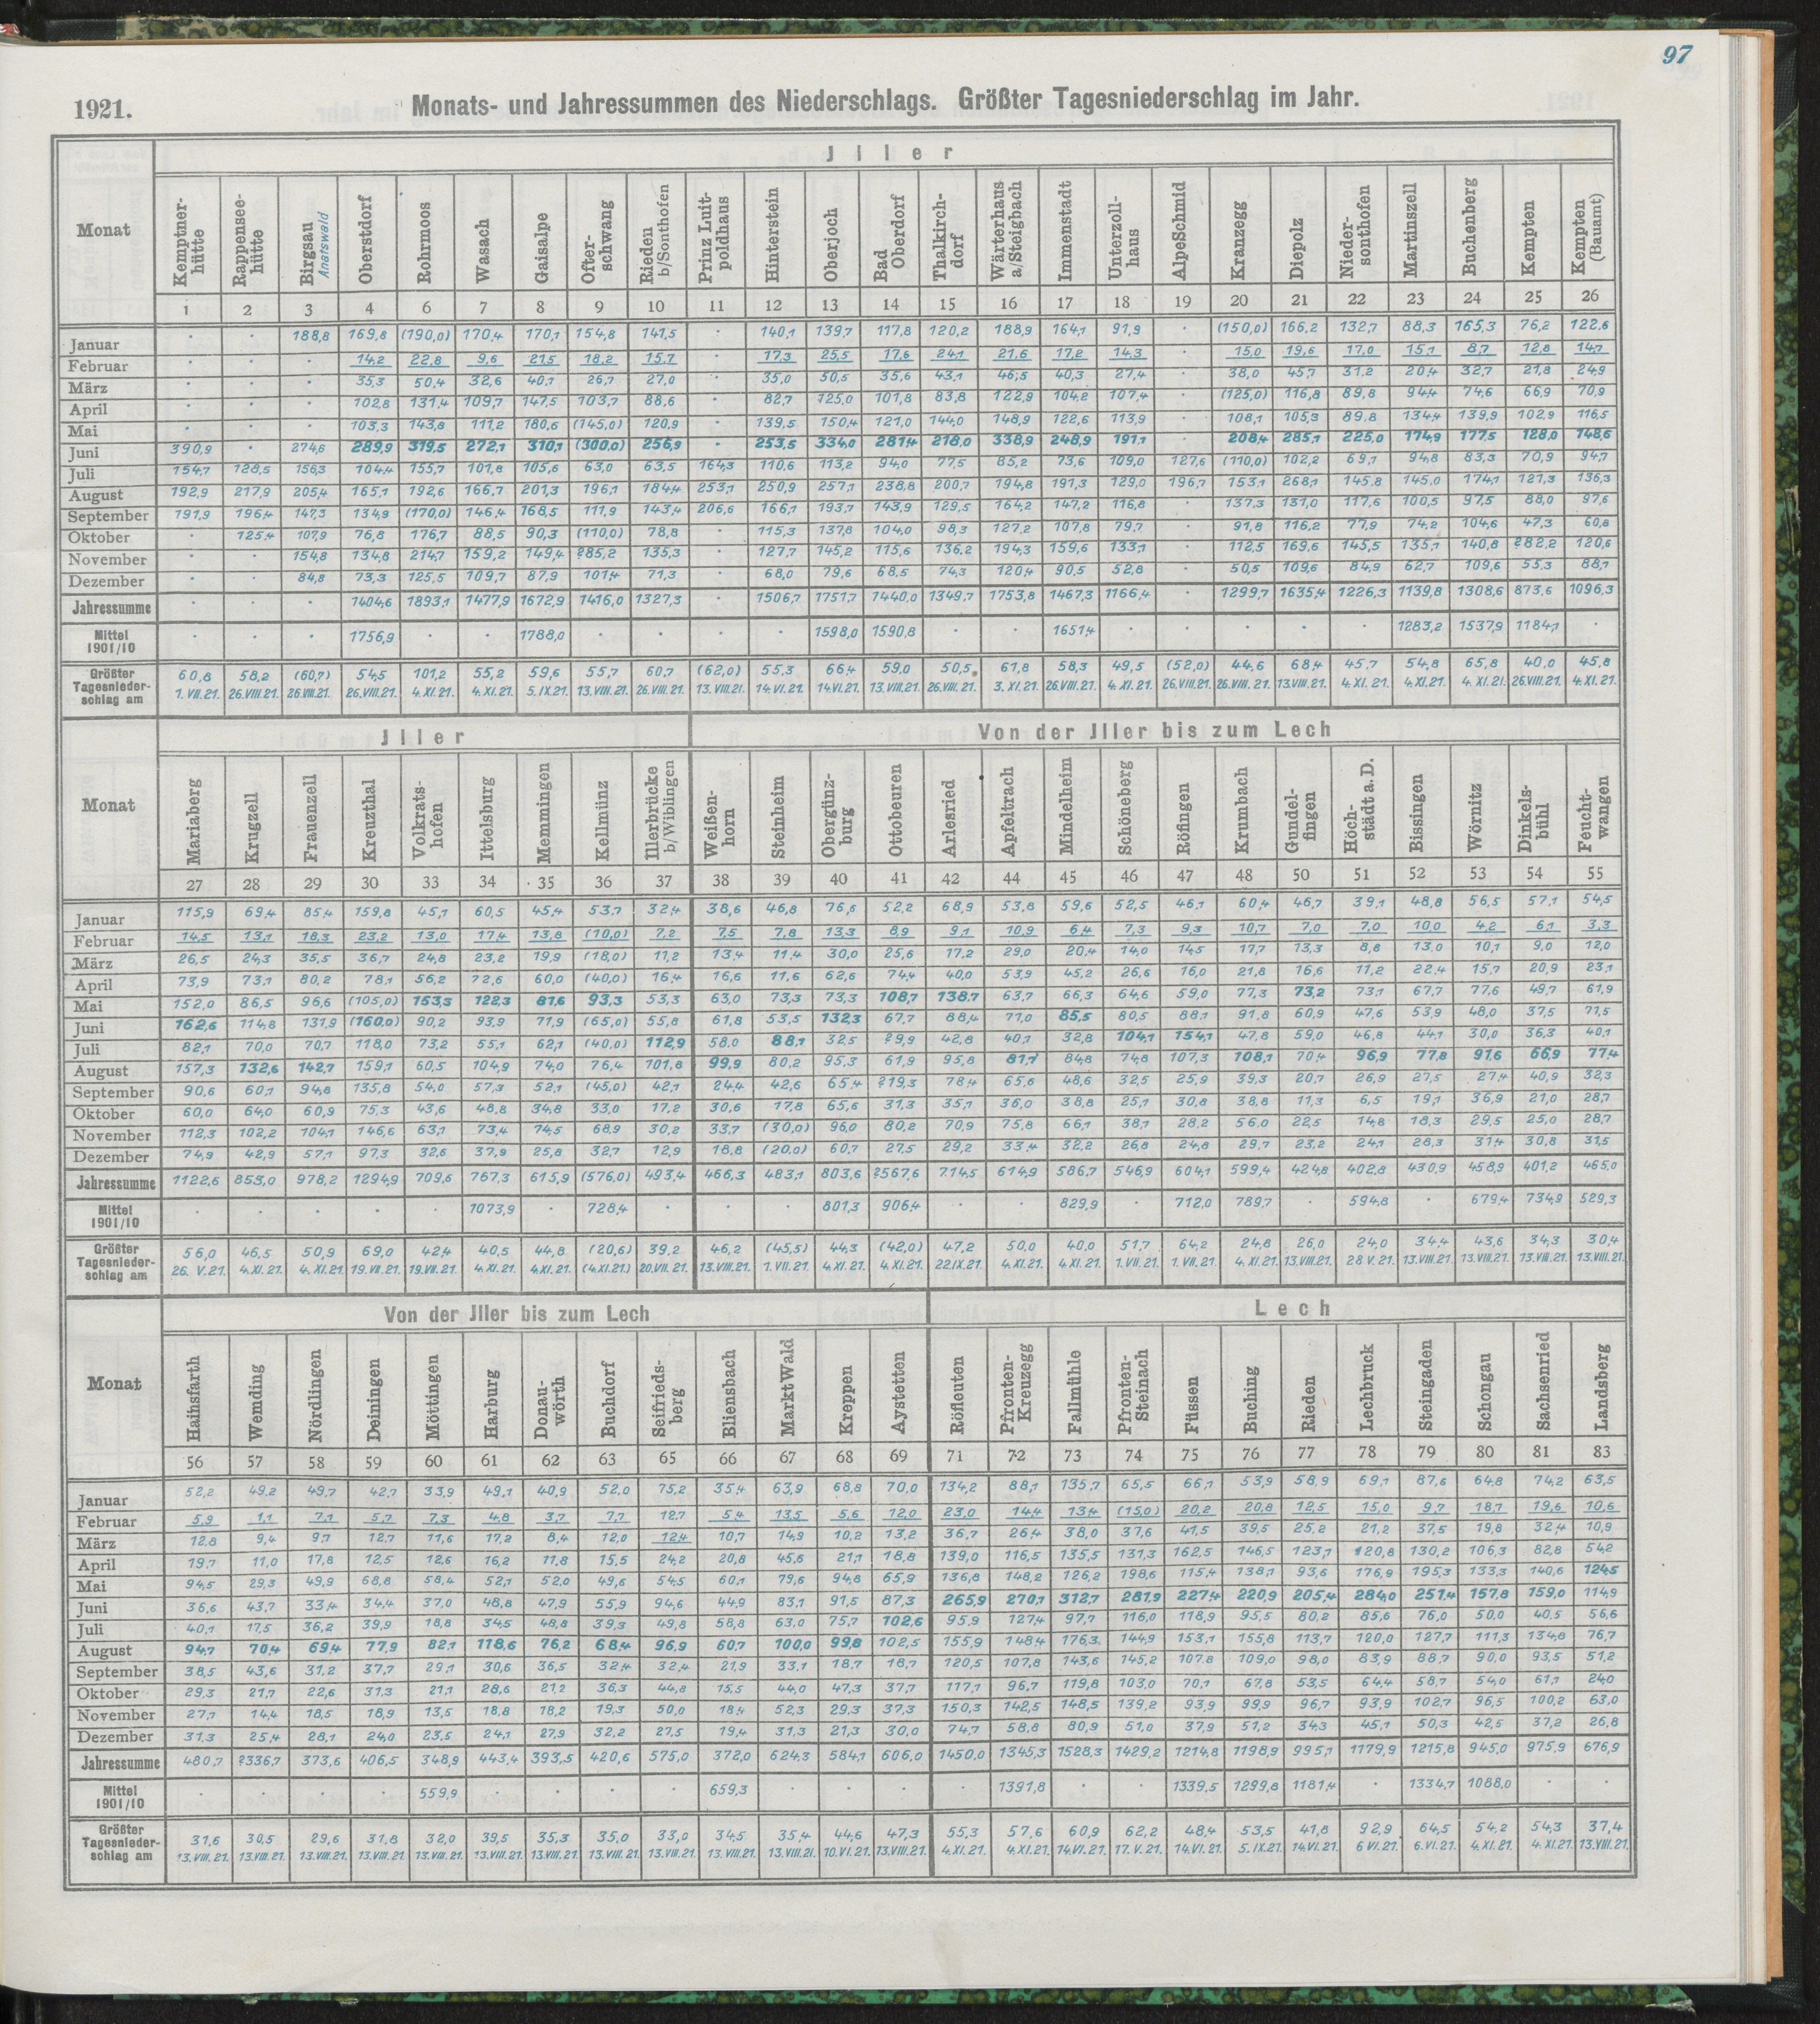 97
1921. Monats- und Jahressummen des Niederschlags. Größter Tagesniederschlag im Jahr.
Jller
Monat Kemptner-hütte Rappensee-hütte Birgsau Anatswald Oberstdorf Rohrmoos Wasach Gaisalpe Ofter-schwang Rieden b/Sonthofen Prinz Luit-poldhaus Hinterstein Oberjoch Bad Oberdorf Thalkirch-dorf Wärterhaus a/Steigbach Immenstadt Unterzoll-haus AlpeSchmid Kranzegg Diepolz Nieder-sonthofen Martinszell Buchenberg Kempten Kempten (Bauamt)
1 2 3 4 6 7 8 9 10 11 12 13 14 15 16 17 18 19 20 21 22 23 24 25 26
Januar · · 188,8 169,8 (190,0) 170,4 170,1 154,8 141,5 · 140,1 139,7 117,8 120,2 188,9 164,1 91,9 · (150,0) 166,2 132,7 88,3 165,3 76,2 122,6
Februar · · · 14,2 22,8 9,6 21,5 18,2 15,7 · 17,3 25,5 17,6 24,1 21,6 17,2 14,3 · 15,0 19,6 17,0 15,1 8,7 12,8 14,7
März · · · 35,3 50,4 32,6 40,1 26,7 27,0 · 35,0 50,5 35,6 43,1 46,5 40,3 27,4 · 38,0 45,7 31,2 20,4 32,7 21,8 24,9
April · · · 102,8 131,4 109,7 147,5 103,7 88,6 · 82,7 125,0 101,8 83,8 122,9 104,2 107,4 · (125,0) 116,8 89,8 94,4 74,6 66,9 70,9
Mai · · · 103,3 143,8 111,2 180,6 (145,0) 120,9 · 139,5 150,4 121,0 144,0 148,9 122,6 113,9 · 108,1 105,3 89,8 134,4 139,9 102,9 116,5
Juni 390,9 · 274,6 289,9 319,5 272,1 310,1 (300,0) 256,9 · 253,5 334,0 281,4 218,0 338,9 248,9 191,1 · 208,4 285,1 225,0 174,9 177,5 128,0 148,6
Juli 154,7 128,5 156,3 104,4 155,7 101,8 105,6 63,0 63,5 164,3 110,6 113,2 94,0 77,5 85,2 73,6 109,0 127,6 (110,0) 102,2 69,1 94,8 83,3 70,9 94,7
August 192,9 217,9 205,4 165,1 192,6 166,7 201,3 196,1 184,4 253,1 250,9 257,1 238,8 200,7 194,8 191,3 129,0 196,7 153,1 268,1 145,8 145,0 174,1 121,3 136,3
September 191,9 196,4 147,3 134,9 (170,0) 146,4 168,5 111,9 143,4 206,6 166,1 193,7 143,9 129,5 164,2 147,2 116,8 · 137,3 131,0 117,6 100,5 97,5 88,0 97,6
Oktober · 125,4 107,9 76,8 176,7 88,5 90,3 (110,0) 78,8 · 115,3 137,8 104,0 98,3 127,2 107,8 79,7 · 91,8 116,2 77,9 74,2 104,6 47,3 60,8
November · · 154,8 134,8 214,7 159,2 149,4 ?85,2 135,3 · 127,7 145,2 115,6 136,2 194,3 159,6 133,1 · 112,5 169,6 145,5 135,1 140,8 ?82,2 120,6
Dezember · · 84,8 73,3 125,5 109,7 87,9 101,4 71,3 · 68,0 79,6 68,5 74,3 120,4 90,5 52,8 · 50,5 109,6 84,9 62,7 109,6 55,3 88,1
Jahressumme · · · 1404,6 1893,1 1477,9 1672,9 1416,0 1327,3 · 1506,7 1751,7 1440,0 1349,7 1753,8 1467,3 1166,4 · 1299,7 1635,4 1226,3 1139,8 1308,6 873,6 1096,3
Mittel 1901/10 · · · 1756,9 · · 1788,0 · · · · 1598,0 1590,8 · · 1651,4 · · · · · 1283,2 1537,9 1184,1 ·
Größter 60,8 58,2 (60,7) 54,5 101,2 55,2 59,6 55,7 60,7 (62,0) 55,3 66,4 59,0 50,5 61,8 58,3 49,5 (52,0) 44,6 68,4 45,7 54,8 65,8 40,0 45,8
Tagesnieder-schlag am 1. VII. 21. 26.VIII.21. 26.VIII.21. 26.VIII.21. 4. XI. 21. 4. XI. 21. 5. IX. 21. 13. VIII. 21. 26. VIII. 21. 13. VIII. 21. 14. VI. 21. 14.VI. 21. 13. VIII.21. 26.VIII. 21. 3. XI. 21. 26.VIII. 21. 4. XI. 21. 26.VIII.21. 26.VIII. 21. 13.VIII.21. 4. XI. 21. 4. XI. 21. 4. XI. 21. 26.VIII.21. 4. XI. 21.
Jller Von der Jller bis zum Lech
Monat Mariaberg Krugzell Frauenzell Kreuzthal Volkrats-hofen Ittelsburg Memmingen Kellmünz Illerbrücke b/Wiblingen Weißen-horn Steinheim Obergünz-burg Ottobeuren Arlesried Apfeltrach Mindelheim Schöneberg Röfingen Krumbach Gundel-fingen Höch-städt a. D. Bissingen Wörnitz Dinkels-bühl Feucht-wangen
27 28 29 30 33 34 35 36 37 38 39 40 41 42 44 45 46 47 48 50 51 52 53 54 55
Januar 115,9 69,4 85,4 159,8 45,1 60,5 45,4 53,7 32,4 38,6 46,8 76,6 52,2 68,9 53,8 59,6 52,5 46,1 60,4 46,7 39,1 48,8 56,5 57,1 54,5
Februar 14,5 13,1 18,3 23,2 13,0 17,4 13,8 (10,0) 7,2 7,5 7,8 13,3 8,9 9,1 10,9 6,4 7,3 9,3 10,7 7,0 7,0 10,0 4,2 6,1 3,3
März 26,5 24,3 35,5 36,7 24,8 23,2 19,9 (18,0) 11,2 13,4 11,4 30,0 25,6 17,2 29,0 20,4 14,0 14,5 17,7 13,3 8,8 13,0 10,1 9,0 12,0
April 73,9 73,1 80,2 78,1 56,2 72,6 60,0 (40,0) 16,4 16,6 11,6 62,6 74,4 40,0 53,9 45,2 26,6 16,0 21,8 16,6 11,2 22,4 15,7 20,9 23,1
Mai 152,0 86,5 96,6 (105,0) 153,3 122,3 81,6 93,3 53,3 63,0 73,3 73,3 108,7 138,7 63,7 66,3 64,6 59,0 77,3 73,2 73,1 67,7 77,6 49,7 61,9
Juni 162,6 114,8 131,9 (160,0) 90,2 93,9 71,9 (65,0) 55,8 61,8 53,5 132,3 67,7 88,4 77,0 85,5 80,5 88,1 91,8 60,9 47,6 53,9 48,0 37,5 71,5
Juli 82,1 70,0 70,7 118,0 73,2 55,1 62,1 (40,0) 112,9 58,0 88,1 32,5 ?9,9 42,8 40,1 32,8 104,1 154,1 47,8 59,0 46,8 44,1 30,0 36,3 40,1
August 157,3 132,6 142,7 159,1 60,5 104,9 74,0 76,4 101,8 99,9 80,2 95,3 61,9 95,8 81,7 84,8 74,8 107,3 108,1 70,4 96,9 77,8 91,6 66,9 77,4
September 90,6 60,1 94,8 135,8 54,0 57,3 52,1 (45,0) 42,1 24,4 42,6 65,4 ?19,3 78,4 65,6 48,6 32,5 25,9 39,3 20,7 26,9 27,5 27,4 40,9 32,3
Oktober 60,0 64,0 60,9 75,3 43,6 48,8 34,8 33,0 17,2 30,6 17,8 65,6 31,3 35,1 36,0 38,8 25,1 30,8 38,8 11,3 6,5 19,1 36,9 21,0 28,7
November 112,3 102,2 104,1 146,6 63,1 73,4 74,5 68,9 30,2 33,7 (30,0) 96,0 80,2 70,9 75,8 66,1 38,1 28,2 56,0 22,5 14,8 18,3 29,5 25,0 28,7
Dezember 74,9 42,9 57,1 97,3 32,6 37,9 25,8 32,7 12,9 18,8 (20,0) 60,7 27,5 29,2 33,4 32,2 26,8 24,8 29,7 23,2 24,1 28,3 31,4 30,8 31,5
Jahressumme 1122,6 853,0 978,2 1294,9 709,6 767,3 615,9 (576,0) 493,4 466,3 483,1 803,6 ?567,6 714,5 614,9 586,7 546,9 604,1 599,4 424,8 402,8 430,9 458,9 401,2 465,0
Mittel 1901/10 · · · · · 1073,9 · 728,4 · · · 801,3 906,4 · · 829,9 · 712,0 789,7 · 594,8 · 679,4 734,9 529,3
Größter 56,0 46,5 50,9 69,0 42,4 40,5 44,8 (20,6) 39,2 46,2 (45,5) 44,3 (42,0) 47,2 50,0 40,0 51,7 64,2 24,8 26,0 24,0 34,4 43,6 34,3 30,4
Tagesnieder-schlag am 26. V. 21. 4. XI. 21. 4. XI. 21. 19. VII. 21. 19. VII. 21. 4. XI. 21. 4.XI. 21. (4.XI.21.) 20.VII. 21. 13.VIII.21. 1. VII. 21. 4.XI. 21. 4. XI. 21. 22.IX.21. 4.XI. 21. 4.XI. 21. 1. VII. 21. 1. VII. 21. 4. XI. 21. 13.VIII.21. 28 V. 21. 13.VIII.21. 13.VIII.21. 13.VIII.21. 13.VIII.21.
Von der Jller bis zum Lech Lech
Monat Hainsfarth Wemding Nördlingen Deiningen Möttingen Harburg Donau-wörth Buchdorf Seifrieds-berg Bliensbach MarktWald Kreppen Aystetten Röfleuten Pfronten-Kreuzegg Fallmühle Pfronten-Steinach Füssen Buching Rieden Lechbruck Steingaden Schongau Sachsenried Landsberg
56 57 58 59 60 61 62 63 65 66 67 68 69 71 72 73 74 75 76 77 78 79 80 81 83
Januar 52,2 49,2 49,7 42,7 33,9 49,1 40,9 52,0 75,2 35,4 63,9 68,8 70,0 134,2 88,1 135,7 65,5 66,1 53,9 58,9 69,1 87,6 64,8 74,2 63,5
Februar 5,9 1,1 7,1 5,7 7,3 4,8 3,7 7,7 12,7 5,4 13,5 5,6 12,0 23,0 14,4 13,4 (15,0) 20,2 20,8 12,5 15,0 9,7 18,7 19,6 10,6
März 12,8 9,4 9,7 12,7 11,6 17,2 8,4 12,0 12,4 10,7 14,9 10,2 13,2 36,7 26,4 38,0 37,6 41,5 39,5 25,2 21,2 37,5 19,8 32,4 10,9
April 19,7 11,0 17,8 12,5 12,6 16,2 11,8 15,5 24,2 20,8 45,6 21,1 18,8 139,0 116,5 135,5 131,3 162,5 146,5 123,1 120,8 130,2 106,3 82,8 54,2
Mai 94,5 29,3 49,9 68,8 58,4 52,1 52,0 49,6 54,5 60,1 79,6 94,8 65,9 136,8 148,2 126,2 198,6 115,4 138,1 93,6 176,9 195,3 133,3 140,6 124,5
Juni 36,6 43,7 33,4 34,4 37,0 48,8 47,9 55,9 94,6 44,9 83,1 91,5 87,3 265,9 270,1 312,7 281,9 227,4 220,9 205,4 284,0 251,4 157,8 159,0 114,9
Juli 40,1 17,5 36,2 39,9 18,8 34,5 48,8 39,3 49,8 58,8 63,0 75,7 102,6 95,9 127,4 97,7 116,0 118,9 95,5 80,2 85,6 76,0 50,0 40,5 56,6
August 94,7 70,4 69,4 77,9 82,1 118,6 76,2 68,4 96,9 60,7 100,0 99,8 102,5 155,9 148,4 176,3 144,9 153,1 155,8 113,7 120,0 127,7 111,3 134,8 76,7
September 38,5 43,6 31,2 37,7 29,1 30,6 36,5 32,4 32,4 21,9 33,1 18,7 18,7 120,5 107,8 143,6 145,2 107,8 109,0 98,0 83,9 88,7 90,0 93,5 51,2
Oktober 29,3 21,7 22,6 31,3 21,1 28,6 21,2 36,3 44,8 15,5 44,0 47,3 37,7 117,1 96,7 119,8 103,0 70,1 67,8 53,5 64,4 58,7 54,0 61,1 24,0
November 27,7 14,4 18,5 18,9 13,5 18,8 18,2 19,3 50,0 18,4 52,3 29,3 37,3 150,3 142,5 148,5 139,2 93,9 99,9 96,7 93,9 102,7 96,5 100,2 63,0
Dezember 31,3 25,4 28,1 24,0 23,5 24,1 27,9 32,2 27,5 19,4 31,3 21,3 30,0 74,7 58,8 80,9 51,0 37,9 51,2 34,3 45,1 50,3 42,5 37,2 26,8
Jahressumme 480,7 ?336,7 373,6 406,5 348,9 443,4 393,5 420,6 575,0 372,0 624,3 584,1 606,0 1450,0 1345,3 1528,3 1429,2 1214,8 1198,9 995,1 1179,9 1215,8 945,0 975,9 676,9
Mittel 1901/10 · · · · 559,9 · · · · 659,3 · · · · 1391,8 · · 1339,5 1299,8 1181,4 · 1334,7 1088,0 · ·
Größter 31,6 30,5 29,6 31,8 32,0 39,5 35,3 35,0 33,0 34,5 35,4 44,6 47,3 55,3 57,6 60,9 62,2 48,4 53,5 41,8 92,9 64,5 54,2 54,3 37,4
Tagesnieder-schlag am 13. VIII. 21. 13.VIII. 21. 13. VIII. 21. 13. VIII. 21. 13. VIII. 21. 13.VIII. 21. 13.VIII. 21. 13. VIII. 21. 13. VIII. 21. 13. VIII. 21. 13. VIII. 21. 10. VI. 21. 13.VIII. 21. 4.XI. 21. 4.XI. 21. 14.VI. 21. 17. V. 21. 14.VI. 21. 5. IX.21. 14.VI. 21. 6 VI. 21. 6. VI. 21. 4. XI. 21. 4. XI. 21. 13. VIII. 21.